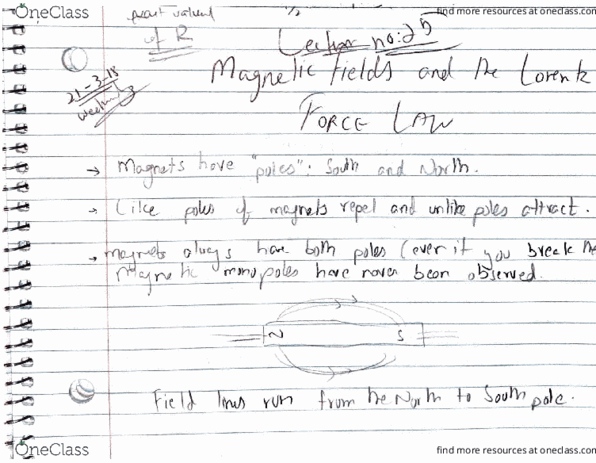 OneClass
find more resources at oneclass.com
of R
Lecture no: 25
21-3-18
Magnetic fields and the Lorentz
FORCE LAW
→ Magnets have "poles": South and North.
→ Like poles of magnets repel and unlike poles attract.
→ Magnets always have both poles (even if you break the
Magnetic monopoles have never been observed.
N S
Field lines run from the North to South pole.
OneClass
find more resources at oneclass.com